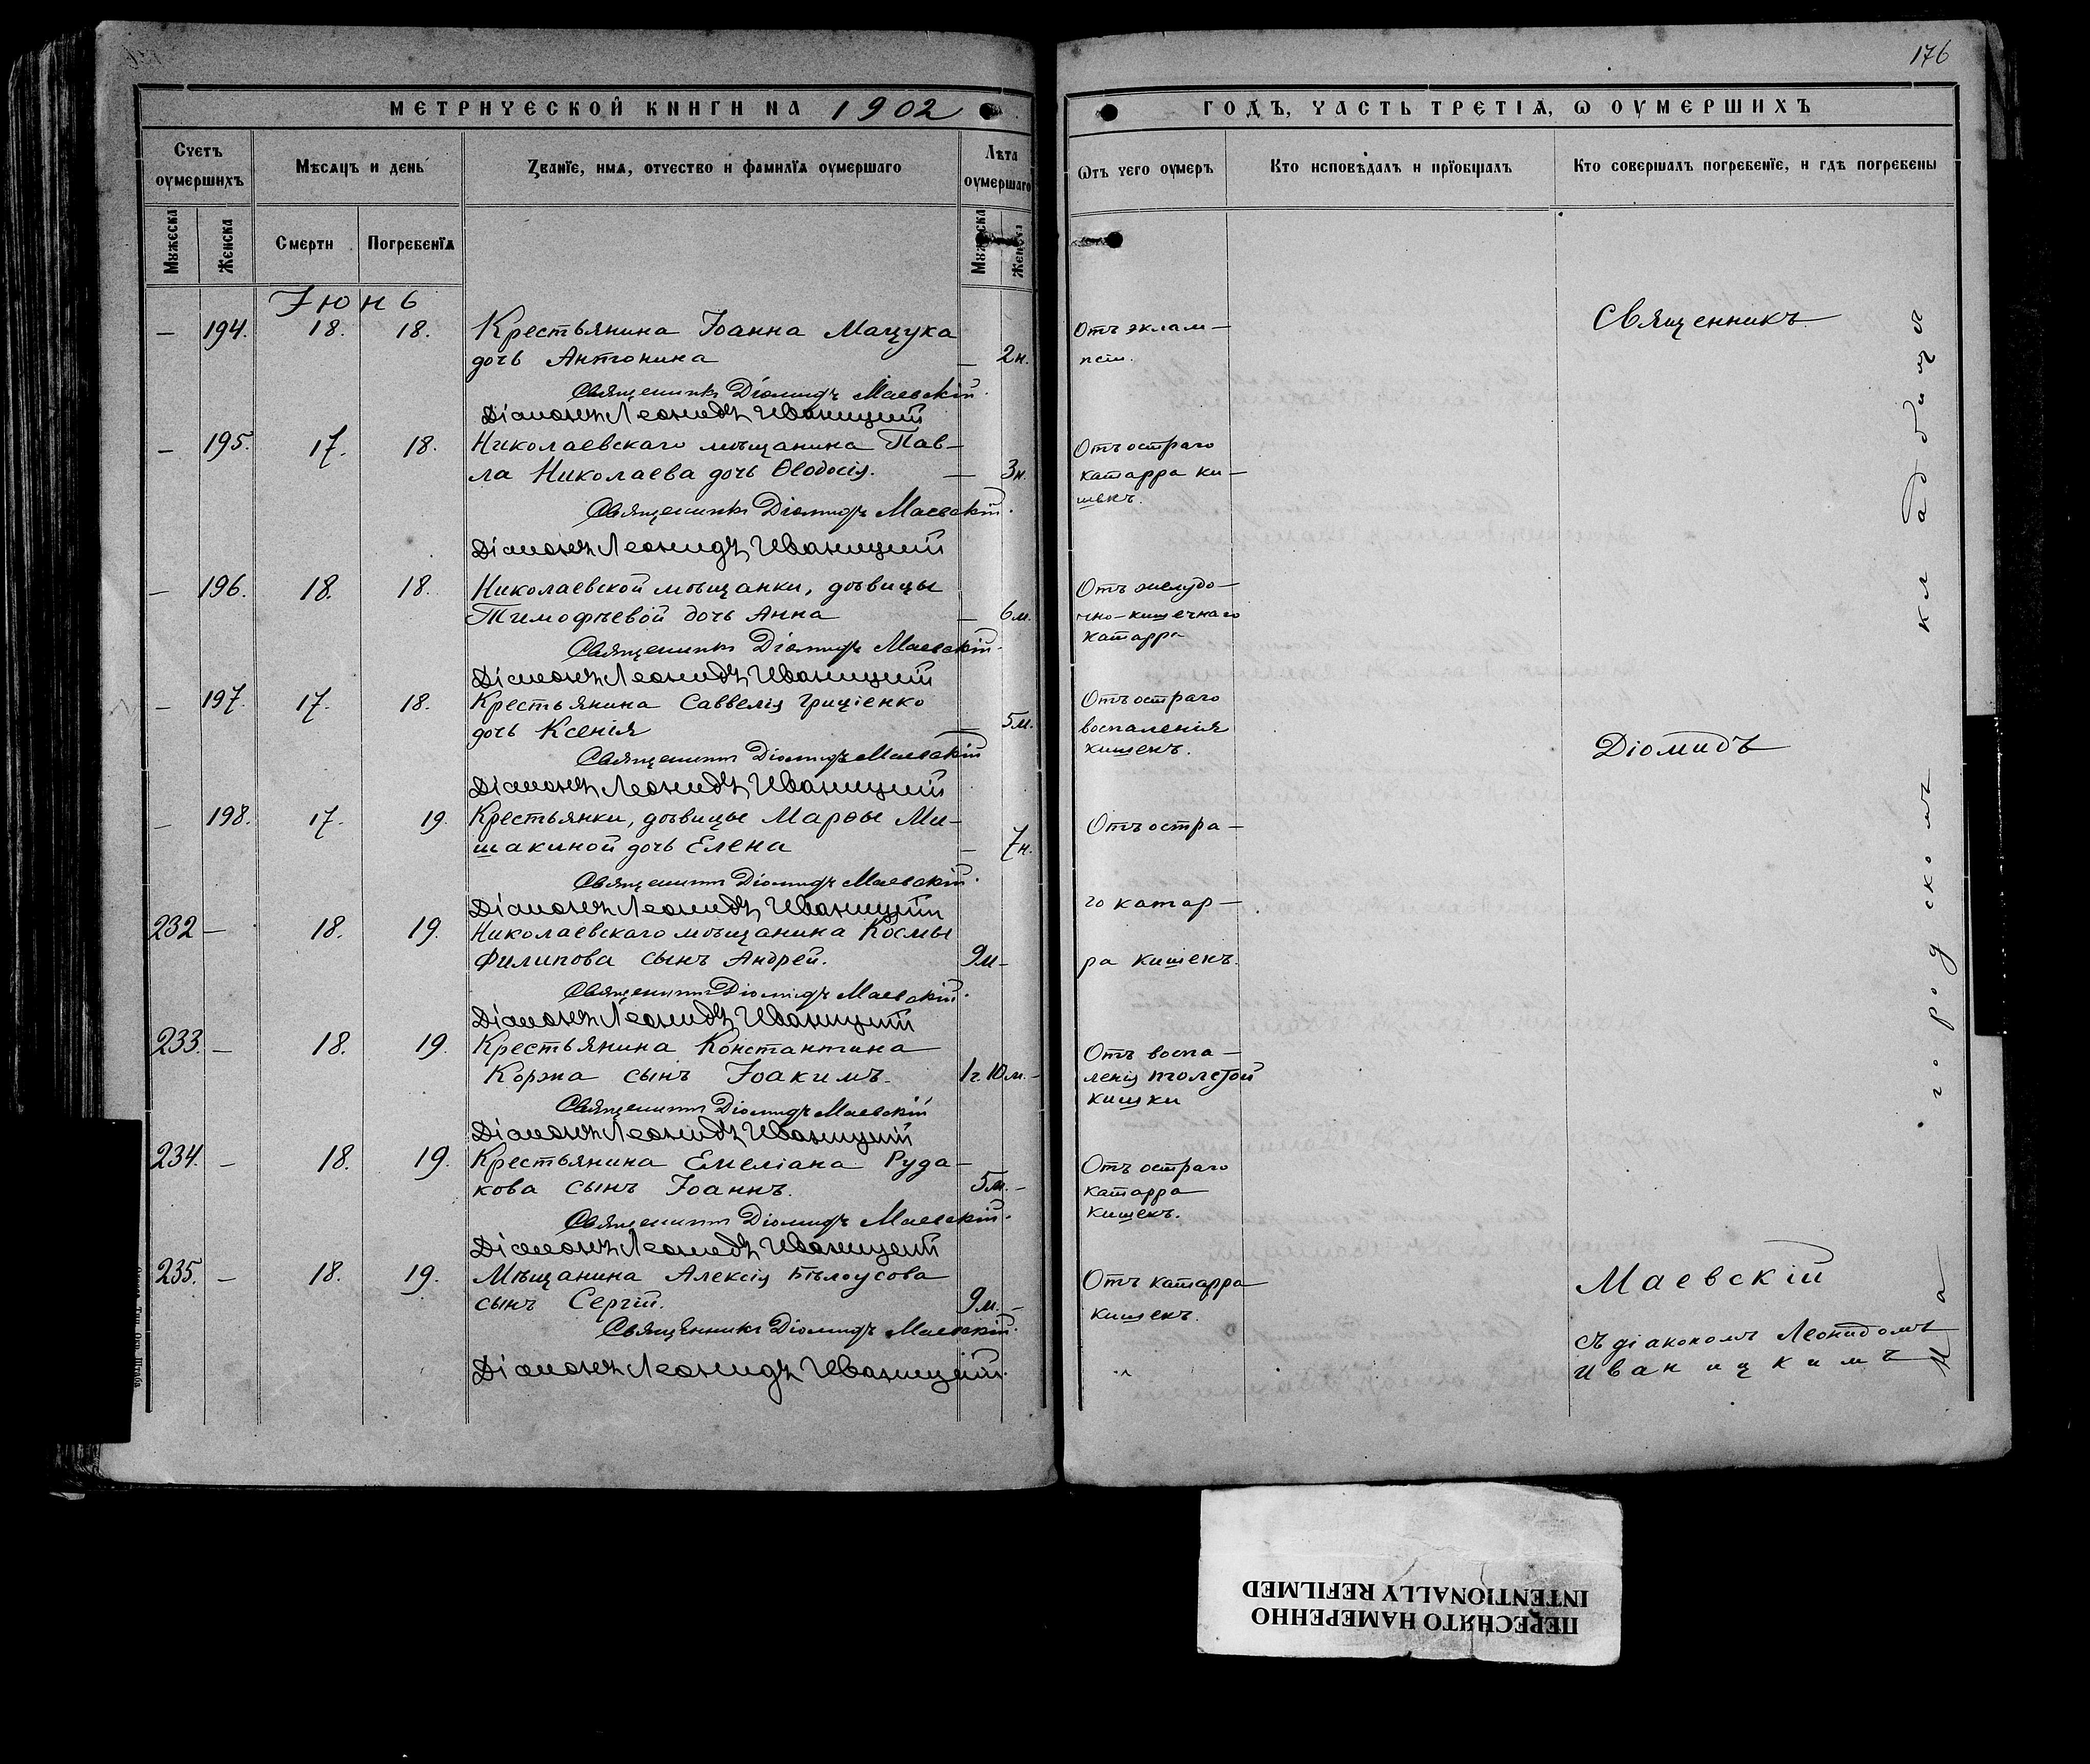 176
МЕТРИЧЕСКОЙ КНИГИ НА 1902
ГОДЪ, ЧАСТЬ ТРЕТІѦ, Ѡ ОУМЕРШИХЪ
Счетъ оумершихъ
Мѣсяцъ и день
Званїе, имѧ, отчество и фамилїа оумершаго
Лѣта оумершаго
Ѿтъ чего оумеръ
Кто исповѣдалъ и прїобщалъ
Кто совершалъ погребенїе, и гдѣ погребены
Мꙋжеска
Женска
Смерти
Погребенїѧ
Мꙋжеска
Женска
Іюнь
— 194. 18. 18. Крестьянина Іоанна Мацука
дочь Антонина — 2н.
Отъ эклам—
псіи.
Священникъ Діомидъ Маевскій.
Діаконъ Леонидъ Иваницкій
— 195. 17. 18. Николаевскаго мѣщанина Пав—
ла Николаева дочь Ѳеодосія. — 3н.
Отъ остраго
катарра ки—
шекъ.
Священникъ Діомидъ Маевскій.
Діаконъ Леонидъ Иваницкій
— 196. 18. 18. Николаевской мѣщанки, дѣвицы
Тимофѣевой дочь Анна — 6м.
Отъ желудо—
чно-кишечнаго
катарра
Священникъ Діомидъ Маевскій.
Діаконъ Леонидъ Иваницкій
— 197. 17. 18. Крестьянина Саввелія Гриціенко
дочь Ксенія — 5м.
Отъ остраго
воспаленія
кишекъ.
Священникъ Діомидъ Маевскій
Діаконъ Леонидъ Иваницкій
— 198. 17. 19. Крестьянки, дѣвицы Марѳы Ми—
шакиной дочь Елена — 7н.
Отъ остра—
Священникъ Діомидъ Маевскій.
Діаконъ Леонидъ Иваницкій
го катар—
232 — 18. 19. Николаевскаго мѣщанина Космы
Филипова сынъ Андрей. 9м —
ра кишекъ.
Священникъ Діомидъ Маевскій.
Діаконъ Леонидъ Иваницкій
233. — 18. 19. Крестьянина Константина
Коржа сынъ Іоакимъ. 1г. 10м. —
Отъ воспа—
ленія толстой
кишки
Священникъ Діомидъ Маевскій
Діаконъ Леонидъ Иваницкій
234. — 18. 19. Крестьянина Емеліана Руда—
кова сынъ Іоаннъ. 5м. —
Отъ остраго
катарра
кишекъ.
Священникъ Діомидъ Маевскій.
Діаконъ Леонидъ Иваницкій
235. — 18. 19. Мѣщанина Алексія Бѣлоусова
сынъ Сергій. 9м. —
Отъ катарра
кишекъ.
Священникъ Діомидъ Маевскій.
Діаконъ Леонидъ Иваницкій.
Священникъ
Діомидъ
Маевскій
съ діакономъ Леонидомъ
Иваницкимъ
На городскомъ кладбищѣ
ПЕРЕСНЯТО НАМЕРЕННО
INTENTIONALLY REFILMED